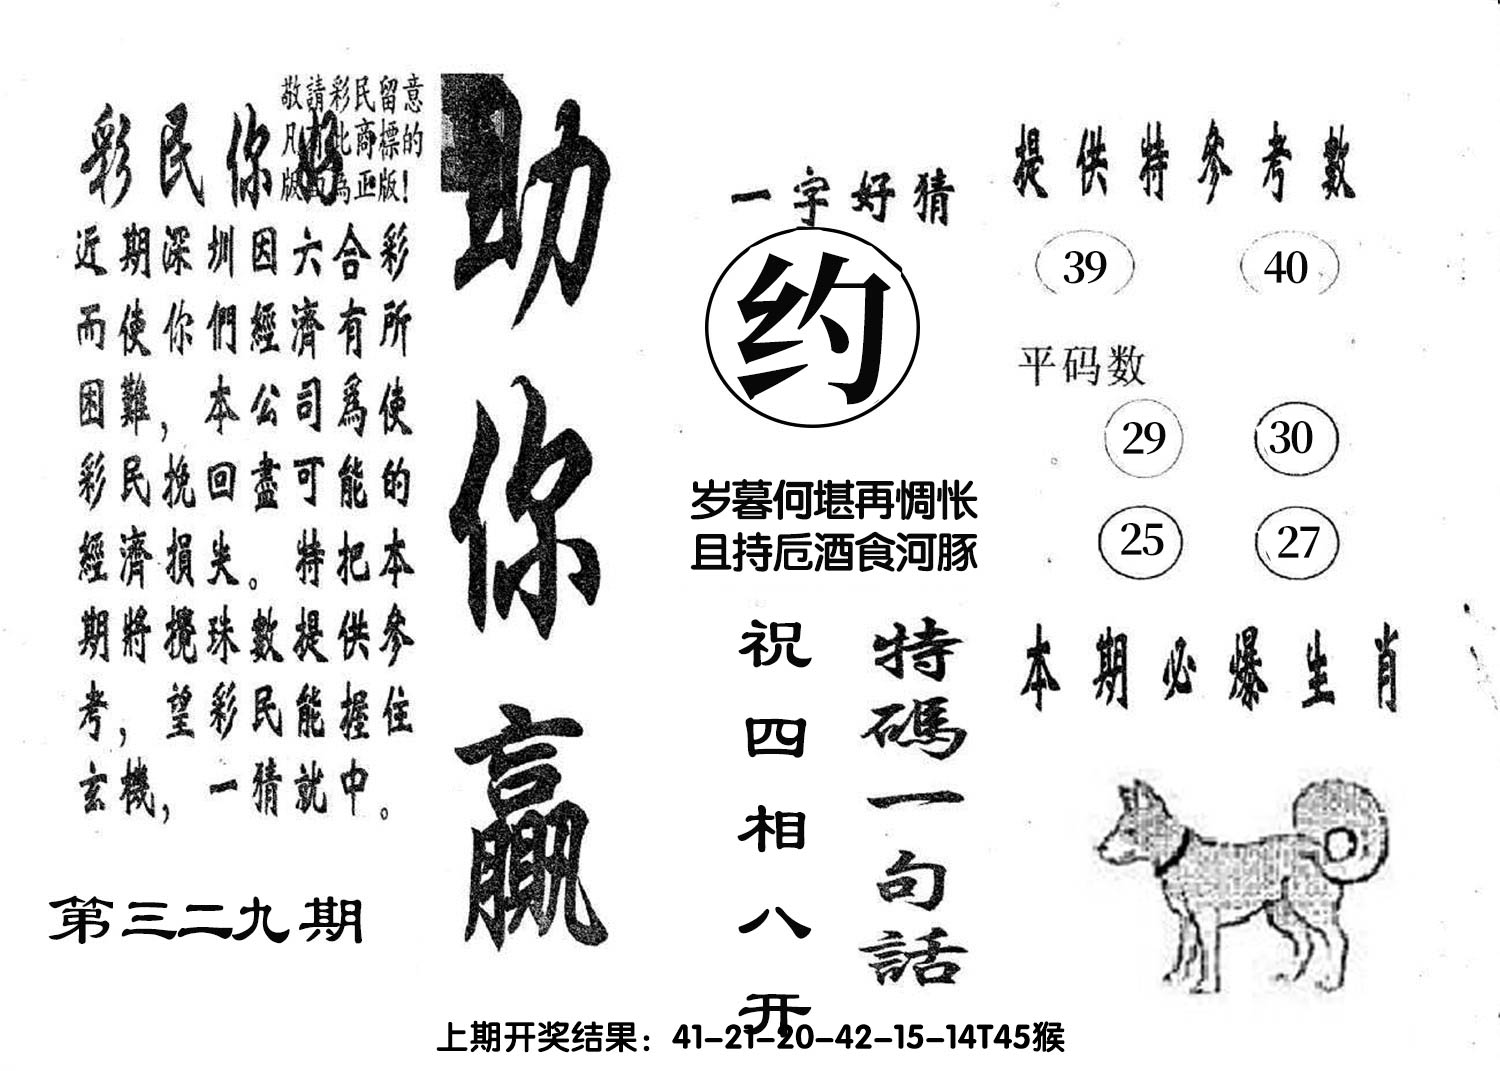 敬請彩民留意
凡有此商標的
版面為正版！
彩民你好
近期深圳因六合彩
而使你們經濟有所
困難，本公司爲使
彩民挽回盡可能的
經濟損失。特把本
期將攪珠數提供參
考，望彩民能握住
玄機，一猜就中。
第三二九期
助你贏
一字好猜
约
岁暮何堪再惆怅
且持卮酒食河豚
特碼一句話
祝四相八开
提供特參考數
39 40
平码数
29 30
25 27
本期必爆生肖
上期开奖结果：41-21-20-42-15-14T45猴